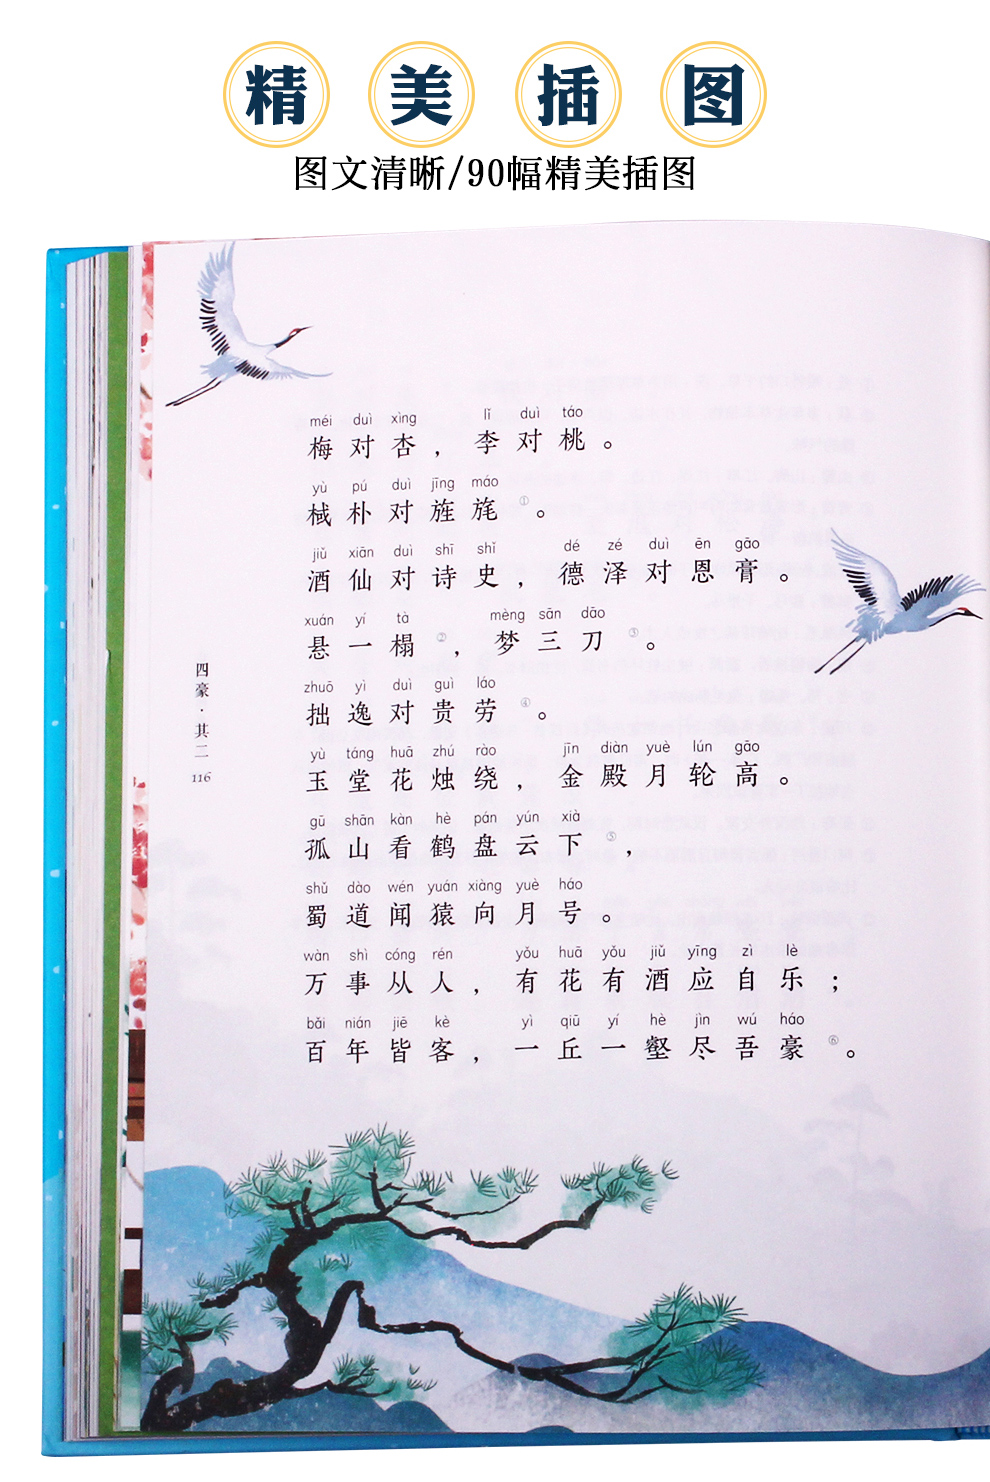 精美插图
图文清晰/90幅精美插图
méi duì xìng lǐ duì táo
梅对杏，李对桃。
yù pú duì jīng máo
棫朴对旌旄①。
jiǔ xiān duì shī shǐ dé zé duì ēn gāo
酒仙对诗史，德泽对恩膏。
xuán yí tà mèng sān dāo
悬一榻②，梦三刀③。
zhuō yì duì guì láo
拙逸对贵劳④。
yù táng huā zhú rào jīn diàn yuè lún gāo
玉堂花烛绕，金殿月轮高。
gū shān kàn hè pán yún xià
孤山看鹤盘云下⑤，
shǔ dào wén yuán xiàng yuè háo
蜀道闻猿向月号。
wàn shì cóng rén yǒu huā yǒu jiǔ yīng zì lè
万事从人，有花有酒应自乐；
bǎi nián jiē kè yì qiū yí hè jìn wú háo
百年皆客，一丘一壑尽吾豪⑥。
四豪·其二
116